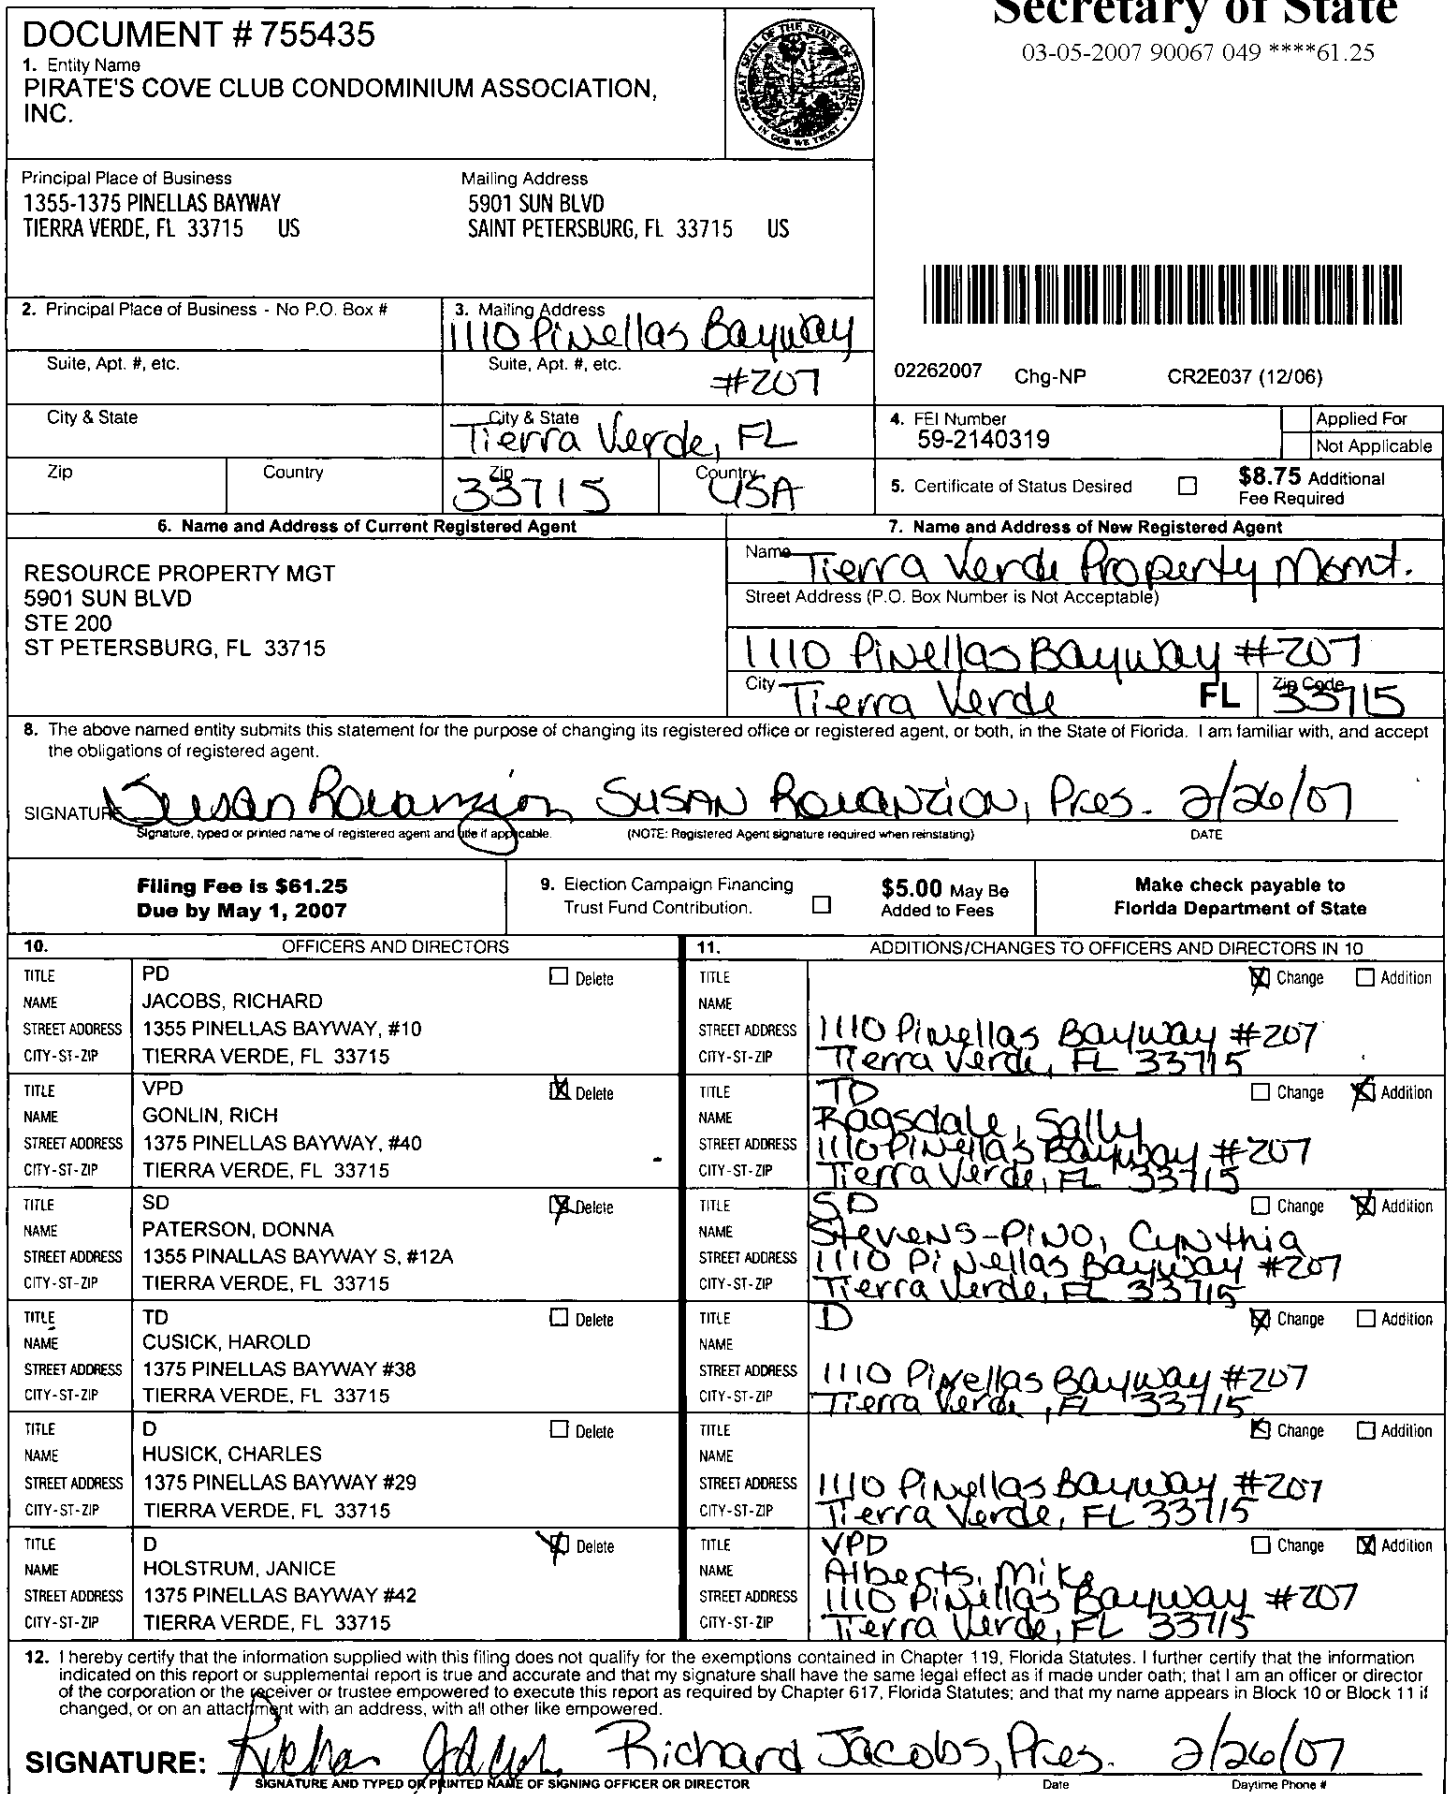 Secretary of State
03-05-2007 90067 049 ****61.25
DOCUMENT # 755435
1. Entity Name
PIRATE'S COVE CLUB CONDOMINIUM ASSOCIATION,
INC.
GREAT SEAL OF THE STATE OF FLORIDA
IN GOD WE TRUST
Principal Place of Business
1355-1375 PINELLAS BAYWAY
TIERRA VERDE, FL 33715 US
Mailing Address
5901 SUN BLVD
SAINT PETERSBURG, FL 33715 US
2. Principal Place of Business - No P.O. Box #
3. Mailing Address
1110 Pinellas Bayway
Suite, Apt. #, etc.
Suite, Apt. #, etc.
#207
02262007 Chg-NP CR2E037 (12/06)
City & State
City & State
Tierra Verde, FL
4. FEI Number
59-2140319
Applied For
Not Applicable
Zip
Country
Zip
33715
Country
USA
5. Certificate of Status Desired
$8.75 Additional
Fee Required
6. Name and Address of Current Registered Agent
7. Name and Address of New Registered Agent
RESOURCE PROPERTY MGT
5901 SUN BLVD
STE 200
ST PETERSBURG, FL 33715
Name Tierra Verde Property Mgmt.
Street Address (P.O. Box Number is Not Acceptable)
1110 Pinellas Bayway #207
City Tierra Verde FL Zip Code 33715
8. The above named entity submits this statement for the purpose of changing its registered office or registered agent, or both, in the State of Florida. I am familiar with, and accept
the obligations of registered agent.
SIGNATURE Susan Rovanzion SUSAN ROVANZION, Pres. 2/26/07
Signature, typed or printed name of registered agent and title if applicable. (NOTE: Registered Agent signature required when reinstating) DATE
Filing Fee is $61.25
Due by May 1, 2007
9. Election Campaign Financing
Trust Fund Contribution.
$5.00 May Be
Added to Fees
Make check payable to
Florida Department of State
10. OFFICERS AND DIRECTORS
11. ADDITIONS/CHANGES TO OFFICERS AND DIRECTORS IN 10
TITLE PD Delete
NAME JACOBS, RICHARD
STREET ADDRESS 1355 PINELLAS BAYWAY, #10
CITY-ST-ZIP TIERRA VERDE, FL 33715
TITLE Change Addition
NAME
STREET ADDRESS 1110 Pinellas Bayway #207
CITY-ST-ZIP Tierra Verde, FL 33715
TITLE VPD Delete
NAME GONLIN, RICH
STREET ADDRESS 1375 PINELLAS BAYWAY, #40
CITY-ST-ZIP TIERRA VERDE, FL 33715
TITLE TD Change Addition
NAME Ragsdale, Sally
STREET ADDRESS 1110 Pinellas Bayway #207
CITY-ST-ZIP Tierra Verde, FL 33715
TITLE SD Delete
NAME PATERSON, DONNA
STREET ADDRESS 1355 PINALLAS BAYWAY S, #12A
CITY-ST-ZIP TIERRA VERDE, FL 33715
TITLE SD Change Addition
NAME Stevens-Pino, Cynthia
STREET ADDRESS 1110 Pinellas Bayway #207
CITY-ST-ZIP Tierra Verde, FL 33715
TITLE TD Delete
NAME CUSICK, HAROLD
STREET ADDRESS 1375 PINELLAS BAYWAY #38
CITY-ST-ZIP TIERRA VERDE, FL 33715
TITLE D Change Addition
NAME
STREET ADDRESS 1110 Pinellas Bayway #207
CITY-ST-ZIP Tierra Verde, FL 33715
TITLE D Delete
NAME HUSICK, CHARLES
STREET ADDRESS 1375 PINELLAS BAYWAY #29
CITY-ST-ZIP TIERRA VERDE, FL 33715
TITLE Change Addition
NAME
STREET ADDRESS 1110 Pinellas Bayway #207
CITY-ST-ZIP Tierra Verde, FL 33715
TITLE D Delete
NAME HOLSTRUM, JANICE
STREET ADDRESS 1375 PINELLAS BAYWAY #42
CITY-ST-ZIP TIERRA VERDE, FL 33715
TITLE VPD Change Addition
NAME Alberts, Mike
STREET ADDRESS 1110 Pinellas Bayway #207
CITY-ST-ZIP Tierra Verde, FL 33715
12. I hereby certify that the information supplied with this filing does not qualify for the exemptions contained in Chapter 119, Florida Statutes. I further certify that the information
indicated on this report or supplemental report is true and accurate and that my signature shall have the same legal effect as if made under oath; that I am an officer or director
of the corporation or the receiver or trustee empowered to execute this report as required by Chapter 617, Florida Statutes; and that my name appears in Block 10 or Block 11 if
changed, or on an attachment with an address, with all other like empowered.
SIGNATURE: Richard Jacobs Richard Jacobs, Pres. 2/26/07
SIGNATURE AND TYPED OR PRINTED NAME OF SIGNING OFFICER OR DIRECTOR Date Daytime Phone #